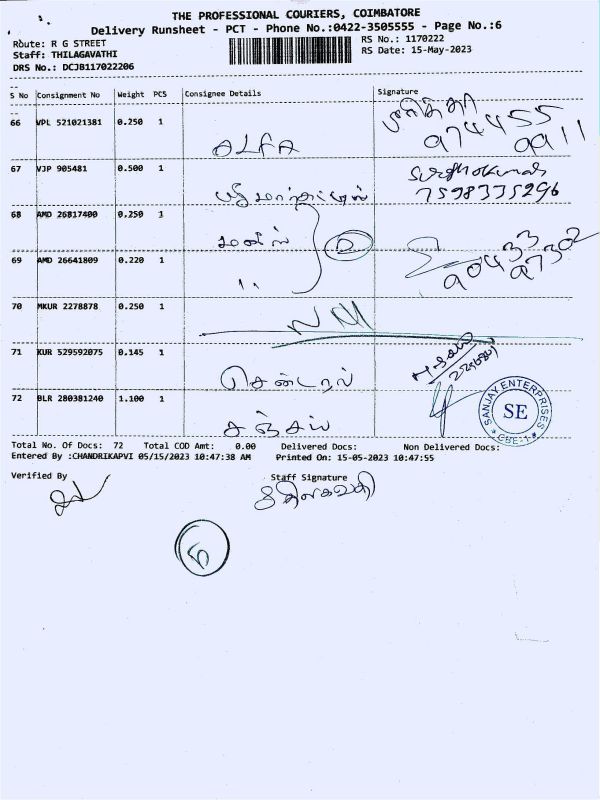 THE PROFESSIONAL COURIERS, COIMBATORE
Delivery Runsheet - PCT - Phone No.:0422-3505555 - Page No.:6
Route: R G STREET RS No.: 1170222
Staff: THILAGAVATHI RS Date: 15-May-2023
DRS No.: DCJB117022206
S No Consignment No Weight PCS Consignee Details Signature
66 VPL 521021381 0.250 1
974455
9911
ALFA
67 VJP 905481 0.500 1
7598335296
68 AMD 26817400 0.250 1
2
69 AMD 26641809 0.220 1
90433
97302
70 MKUR 2278878 0.250 1
NM
71 KUR 529592075 0.145 1
சென்டரல்
72 BLR 280381240 1.100 1
சஞ்சய்
SANJAY ENTERPRISES
SE
CBE-1
Total No. Of Docs: 72 Total COD Amt: 0.00 Delivered Docs: Non Delivered Docs:
Entered By :CHANDRIKAPVI 05/15/2023 10:47:38 AM Printed On: 15-05-2023 10:47:55
Verified By Staff Signature